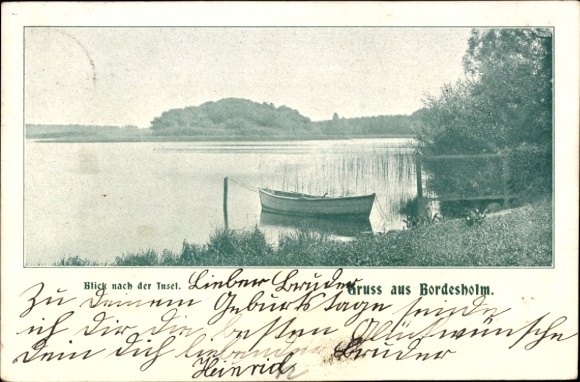 Blick nach der Insel. Lieber Bruder Gruss aus Bordesholm.
Zu deinem Geburtstage sende
ich Dir die besten Glückwünsche
Dein dich liebender Bruder
Heinrich